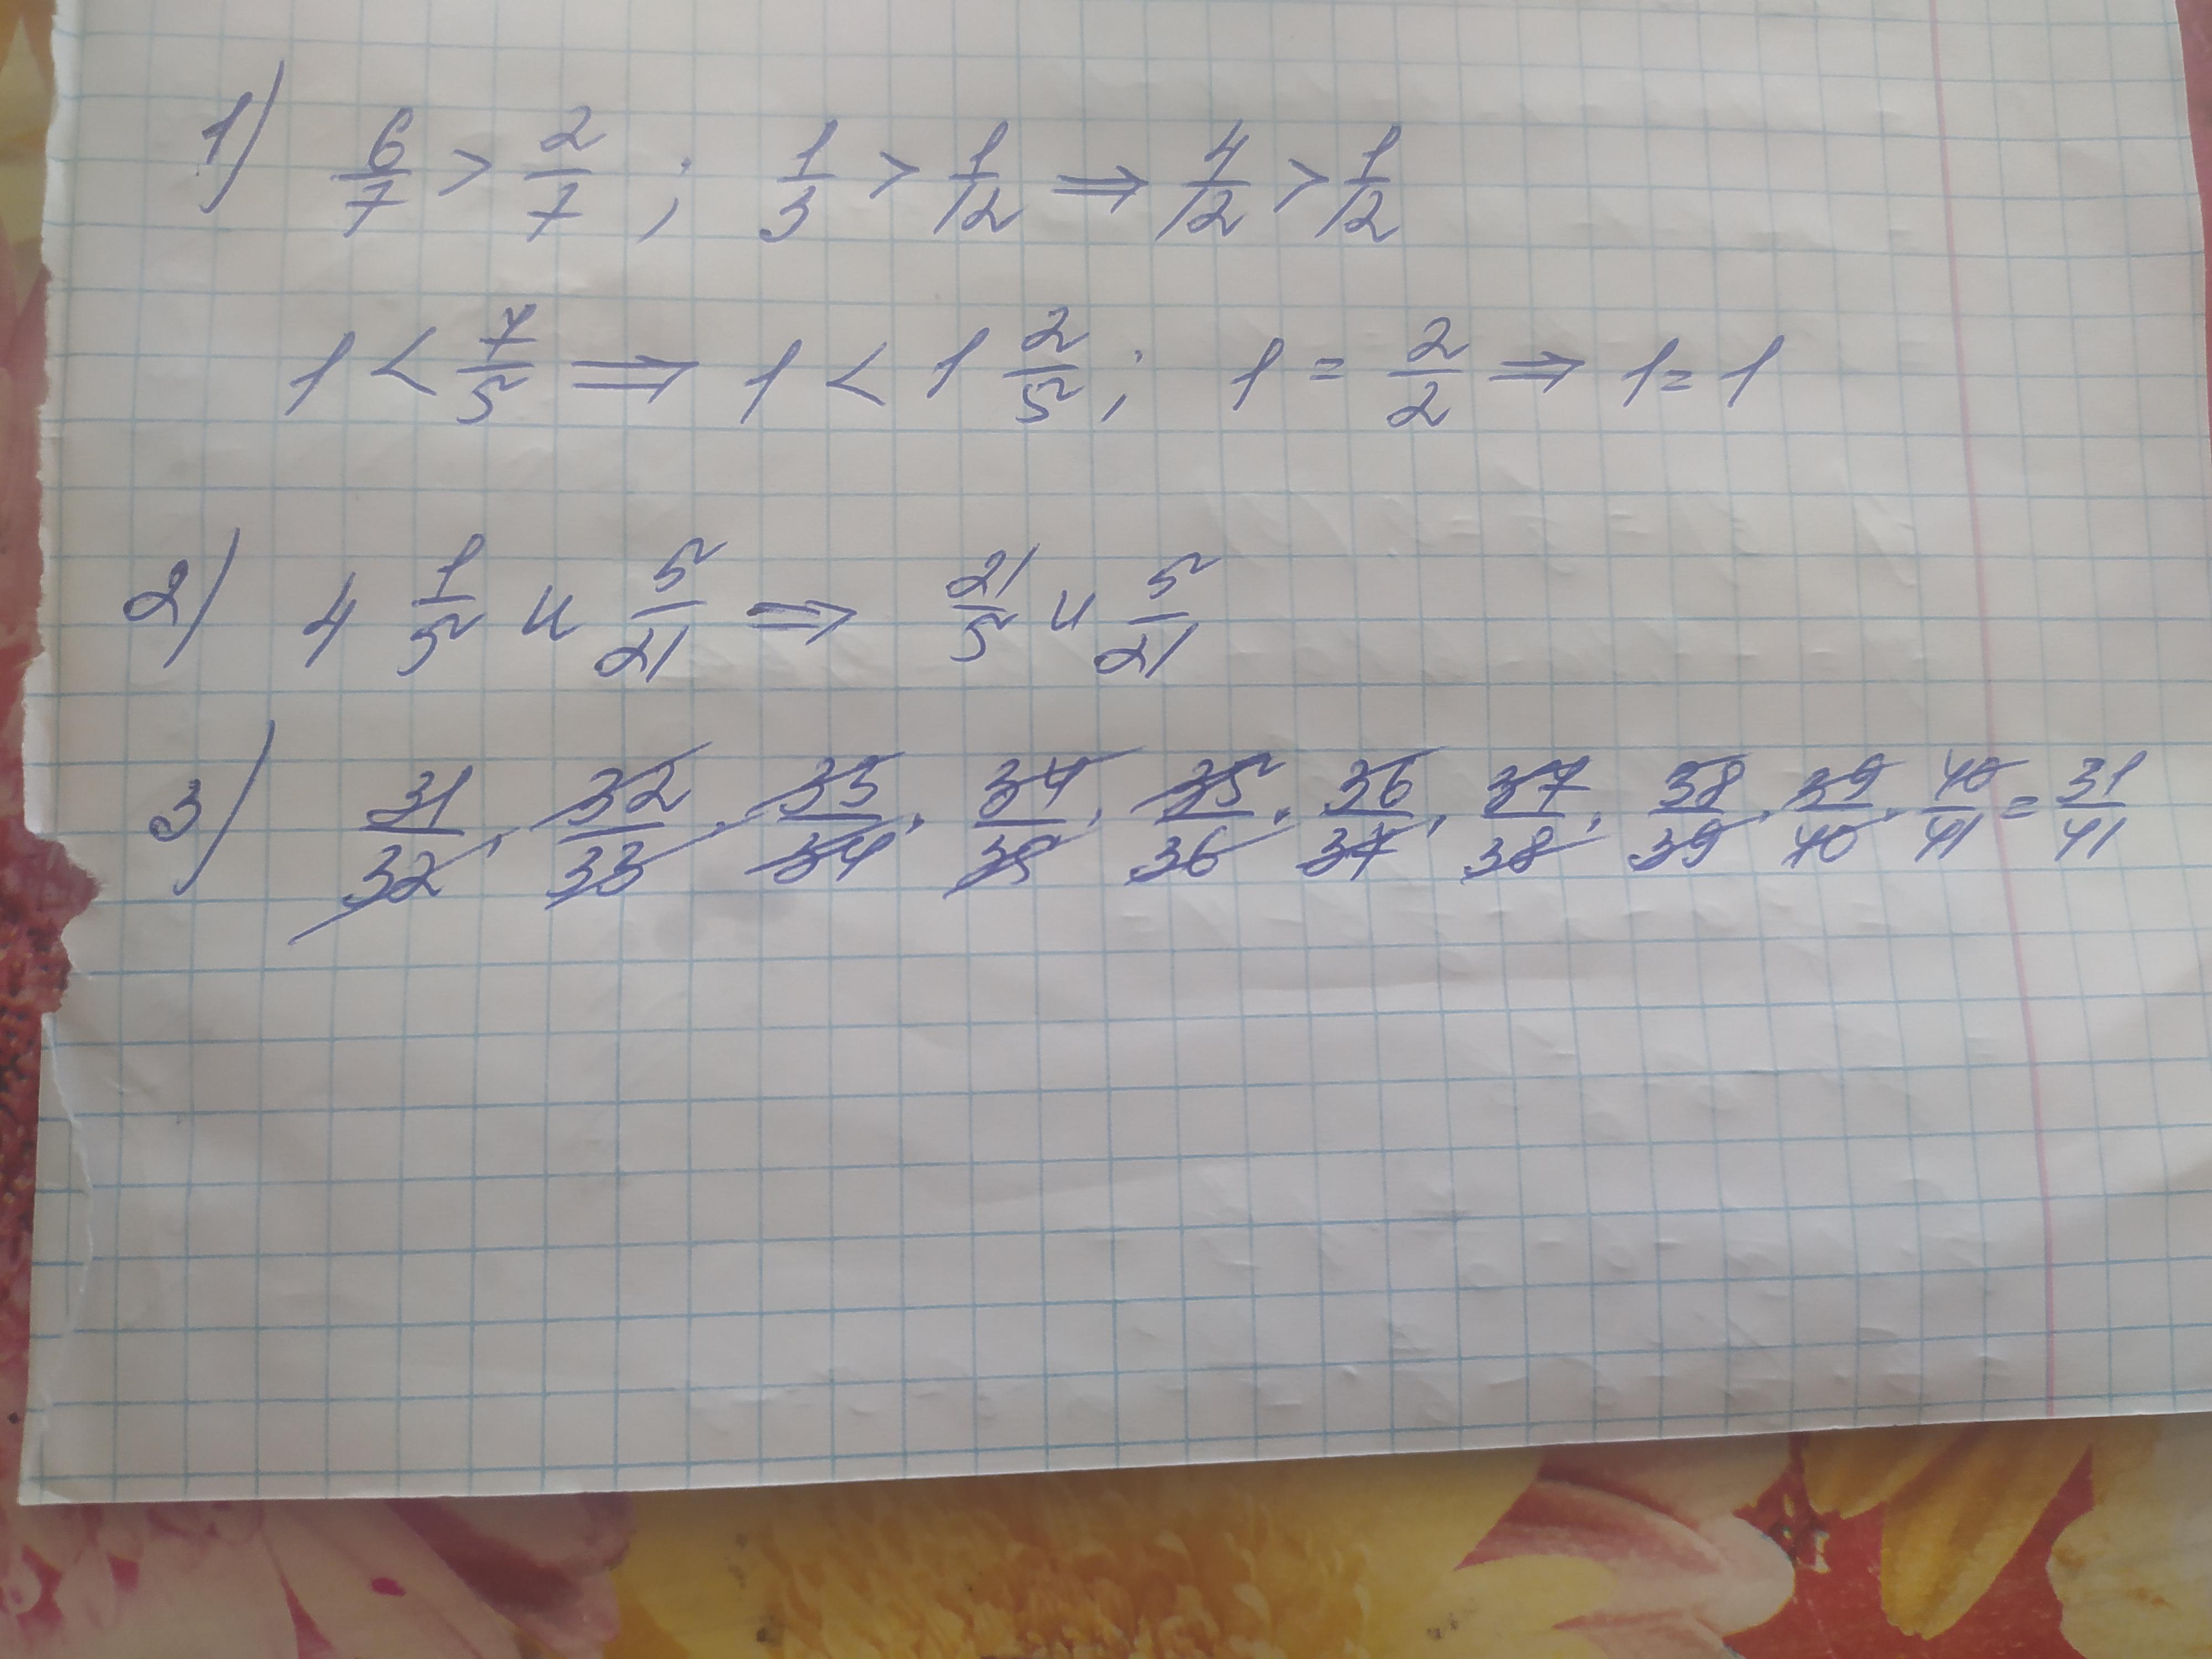 1) 6/7 > 2/7 ; 1/3 > 1/12 ⇒ 4/12 > 1/12
1 < 7/5 ⇒ 1 < 1 2/5 ; 1 = 2/2 ⇒ 1 = 1
2) 4 1/5 и 5/21 ⇒ 21/5 и 5/21
3) 31/32 · 32/33 · 33/34 · 34/35 · 35/36 · 36/37 · 37/38 · 38/39 · 39/40 · 40/41 = 31/41